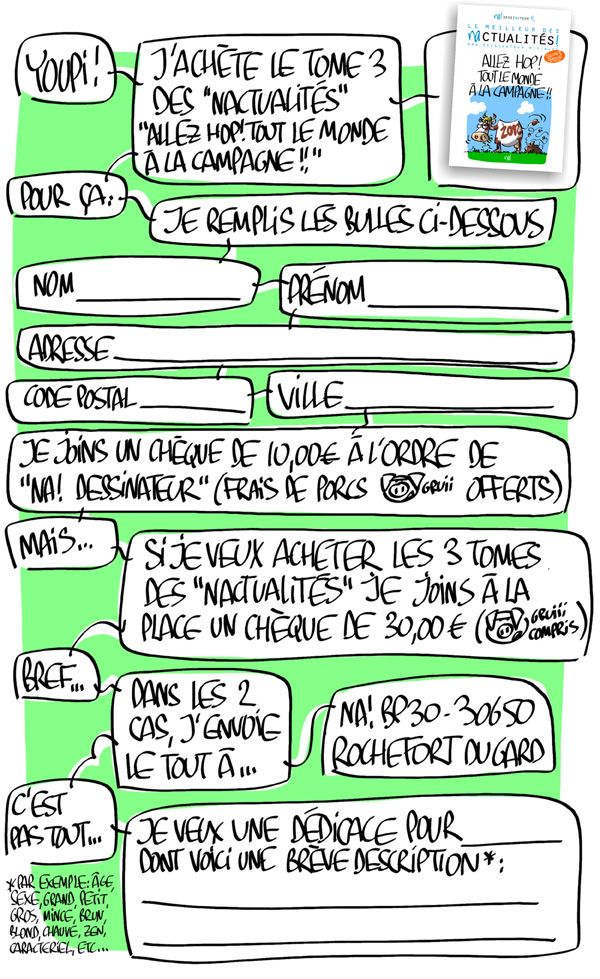 YOUPI!
J'ACHÈTE LE TOME 3
DES "NACTUALITÉS"
"ALLEZ HOP! TOUT LE MONDE
À LA CAMPAGNE!!"
LE MEILLEUR DES
NACTUALITÉS!
ALLEZ HOP!
TOUT LE MONDE
À LA CAMPAGNE!!
POUR ÇA:
JE REMPLIS LES BULLES CI-DESSOUS
NOM
PRÉNOM
ADRESSE
CODE POSTAL
VILLE
JE JOINS UN CHÈQUE DE 10,00€ À L'ORDRE DE
"NA! DESSINATEUR" (FRAIS DE PORCS GRUIII OFFERTS)
MAIS...
SI JE VEUX ACHETER LES 3 TOMES
DES "NACTUALITÉS" JE JOINS À LA
PLACE UN CHÈQUE DE 30,00€ (GRUIII
COMPRIS)
BREF...
DANS LES 2
CAS, J'ENVOIE
LE TOUT À...
NA! BP30-30650
ROCHEFORT DU GARD
C'EST
PAS TOUT...
JE VEUX UNE DÉDICACE POUR
DONT VOICI UNE BRÈVE DESCRIPTION*:
*PAR EXEMPLE: ÂGE,
SEXE, GRAND, PETIT,
GROS, MINCE, BRUN,
BLOND, CHAUVE, ZEN,
CARACTERIEL, ETC...